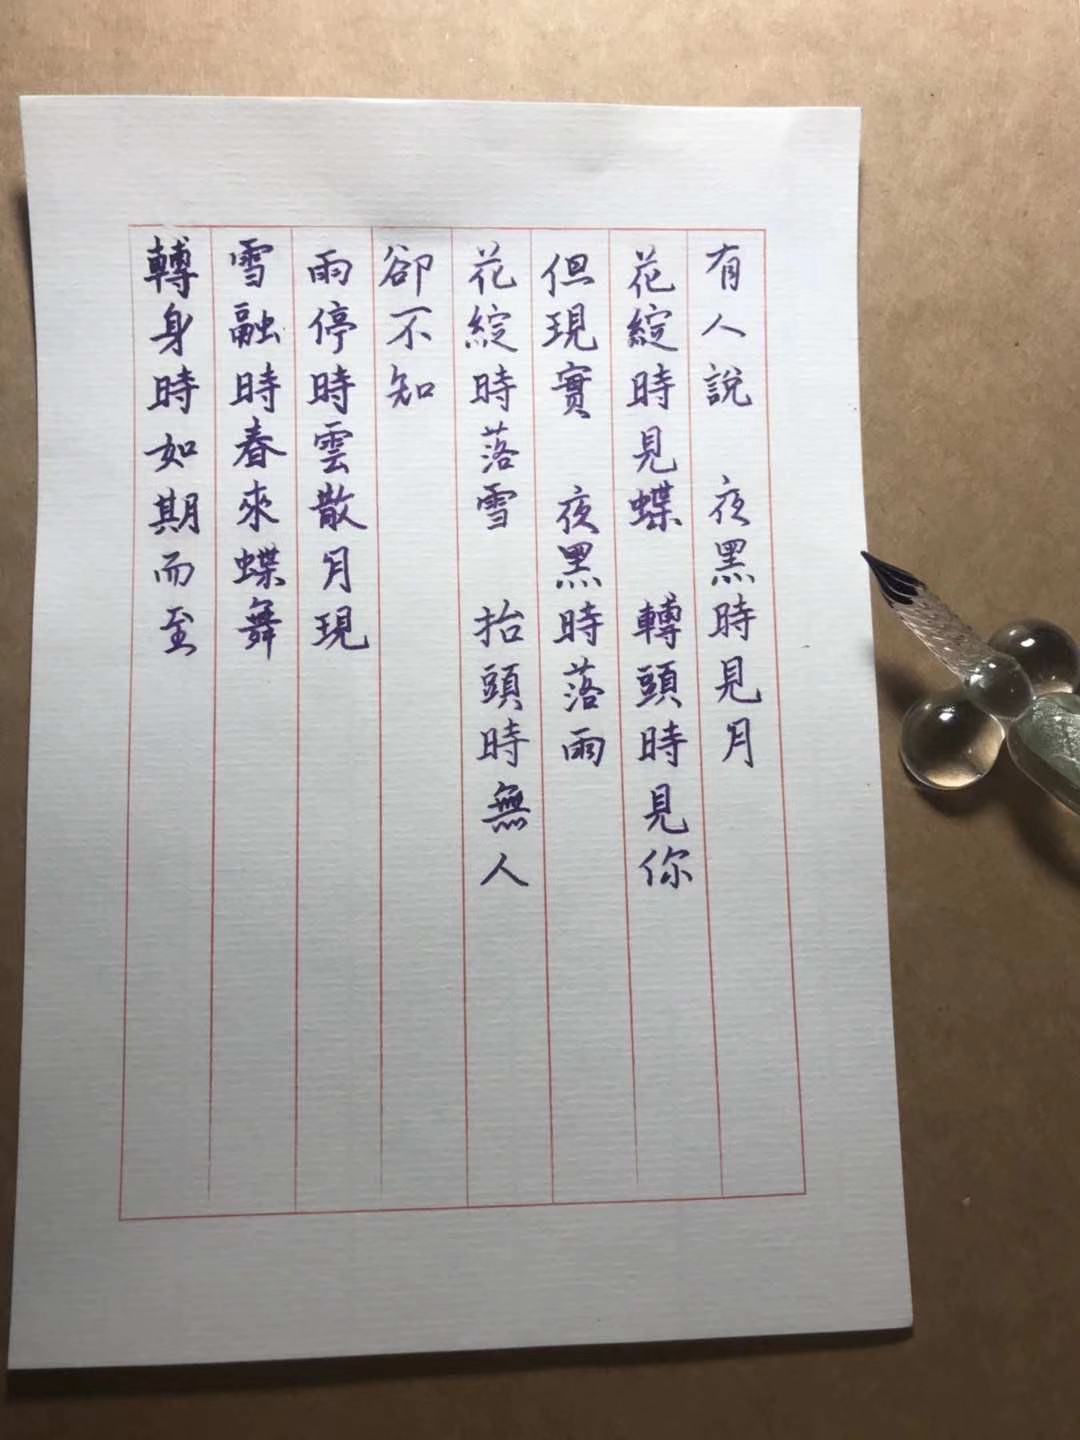 有人說 夜黑時見月
花綻時見蝶 轉頭時見你
但現實 夜黑時落雨
花綻時落雪 抬頭時無人
卻不知
雨停時雲散月現
雪融時春來蝶舞
轉身時如期而至